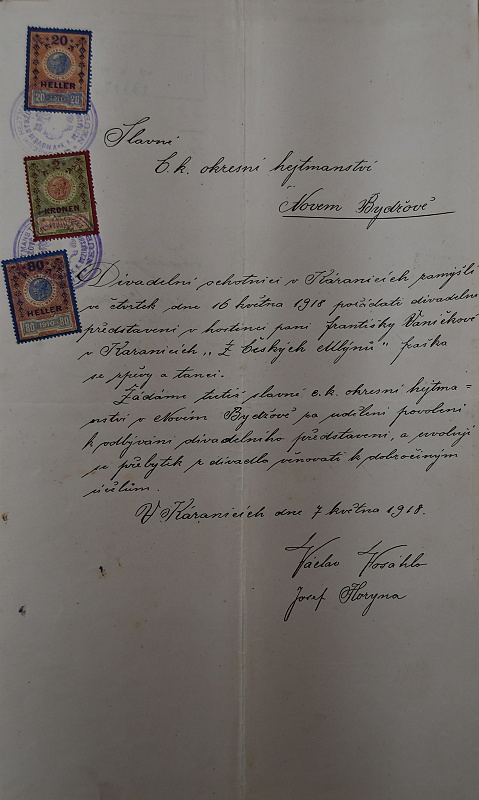 20
HELLER
20 20
2
KRONEN
80
HELLER
80 1910 80
Slavné
C. k. okresní hejtmanství
Novém Bydžově
Divadelní ochotníci v Káranicích zamýšlí
ve čtvrtek dne 16 května 1918 pořádati divadelní
představení v hostinci paní Františky Vaníčkové
v Karanicích „Z Českých Mlýnů" fraška
se zpěvy a tanci.
Žádáme tutéž slavné c. k. okresní hejtma-
nství v Novém Bydžově za udělení povolení
k odbývání divadelního představení, a uvolují
se přebytek z divadla věnovati k dobročinným
účelům.
V Káranicích dne 7 května 1918.
Václav Vosáhlo
Josef Floryna